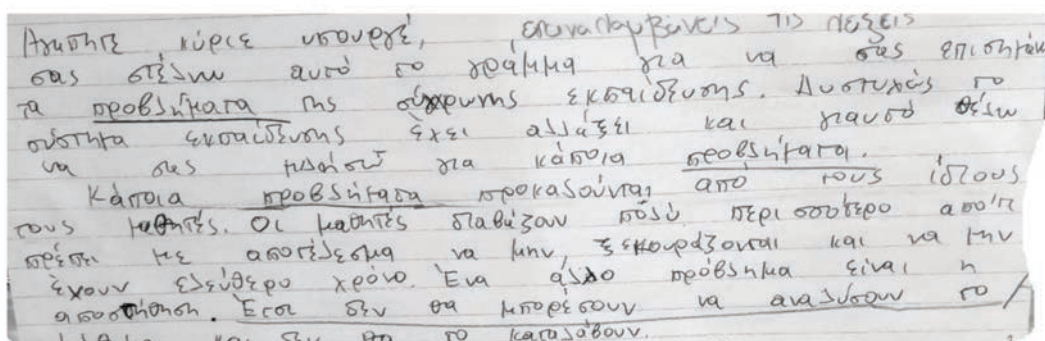 Αγαπητέ κύριε υπουργέ, επαναλαμβάνεις τις λέξεις
σας στέλνω αυτό το γράμμα για να σας επισημάν
τα προβλήματα της σύγχρωνης εκπαίδευσης. Δυστυχώς το
σύστητα εκπαίδευσης έχει αλλάξει και γιαυτό θέλω
να σας μιλήσω για κάποια προβλήματα.
Κάποια προβλήματα προκαλούνται από τους ίδιους
τους μαθητές. Οι μαθητές διαβάζουν πολύ περισσότερο απ'ότι
πρέπει με αποτέλεσμα να μην, ξεκουράζονται και να μην
έχουν ελεύθερο χρόνο. Ένα άλλο πρόβλημα είναι η
αποστήθηση. Έτσι δεν θα μπορέσουν να αναλύσουν το
και δεν θα το καταλάβουν.